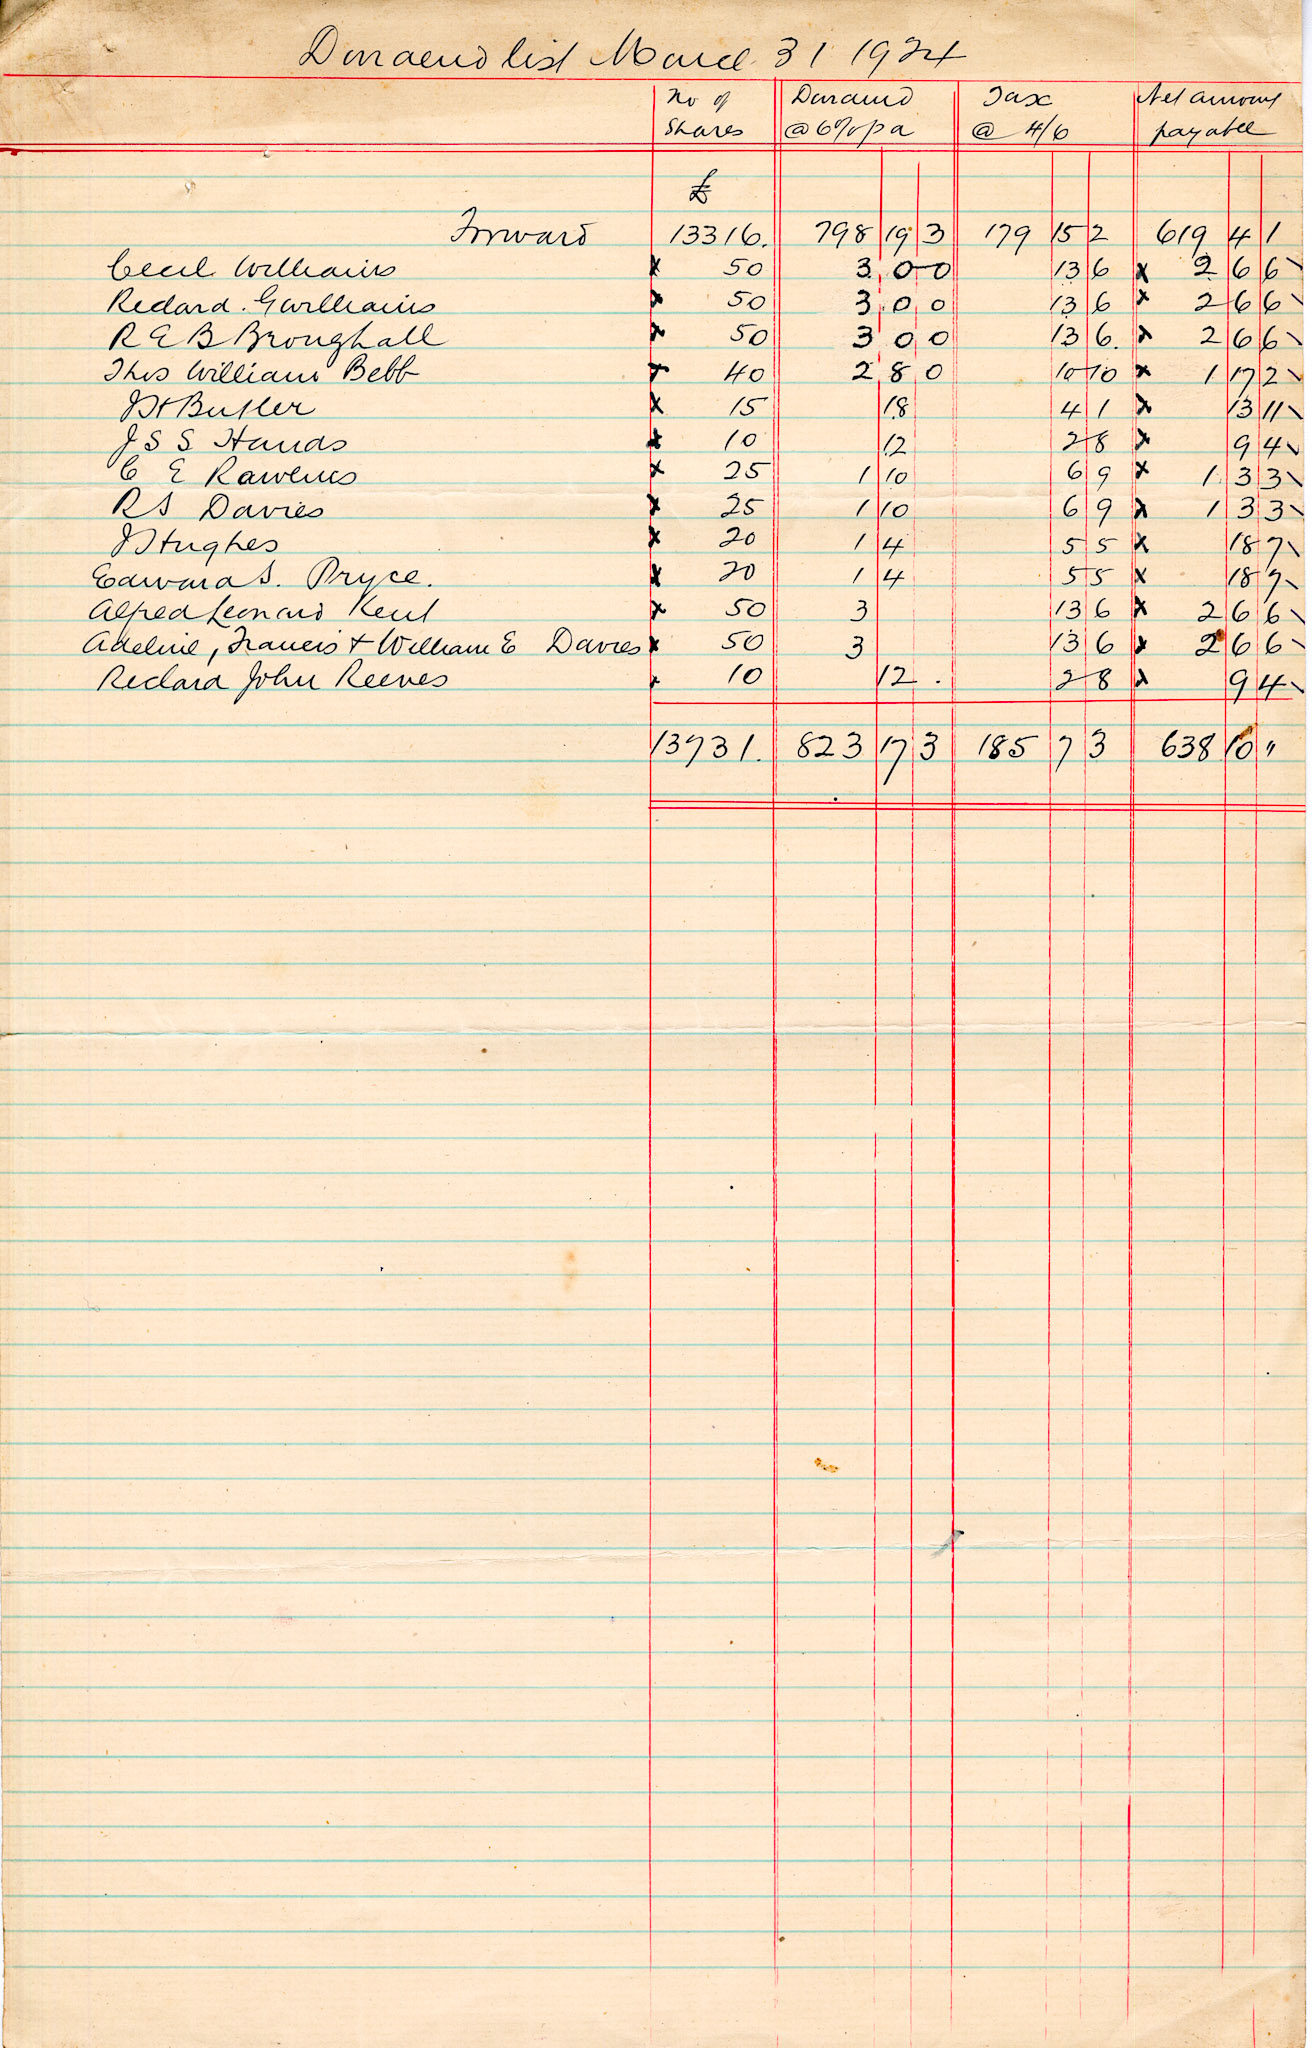 Dividend list March 31 1924
No of Shares Dividend @ 6% pa Tax @ 4/6 Net amount payable
£
Forward 13316. 798 19 3 179 15 2 619 4 1
Cecil Williams x 50 3 0 0 13 6 x 2 6 6
Richard. G Williams x 50 3 0 0 13 6 x 2 6 6
R E B Broughall x 50 3 0 0 13 6. x 2 6 6
Thos William Bebb x 40 2 8 0 10 10 x 1 17 2
Butler x 15 18 4 1 x 13 11
J S S Hands x 10 12 2 8 x 9 4
C E Rawlins x 25 1 10 6 9 x 1 3 3
R S Davies x 25 1 10 6 9 x 1 3 3
Hughes x 20 1 4 5 5 x 18 7
Edward S. Pryce. x 20 1 4 5 5 x 18 7
Alfred Leonard Kent x 50 3 13 6 x 2 6 6
Adeline, Francis + William E Davies x 50 3 13 6 x 2 6 6
Richard John Reeves x 10 12 . 2 8 x 9 4
13731. 823 17 3 185 7 3 638 10 "